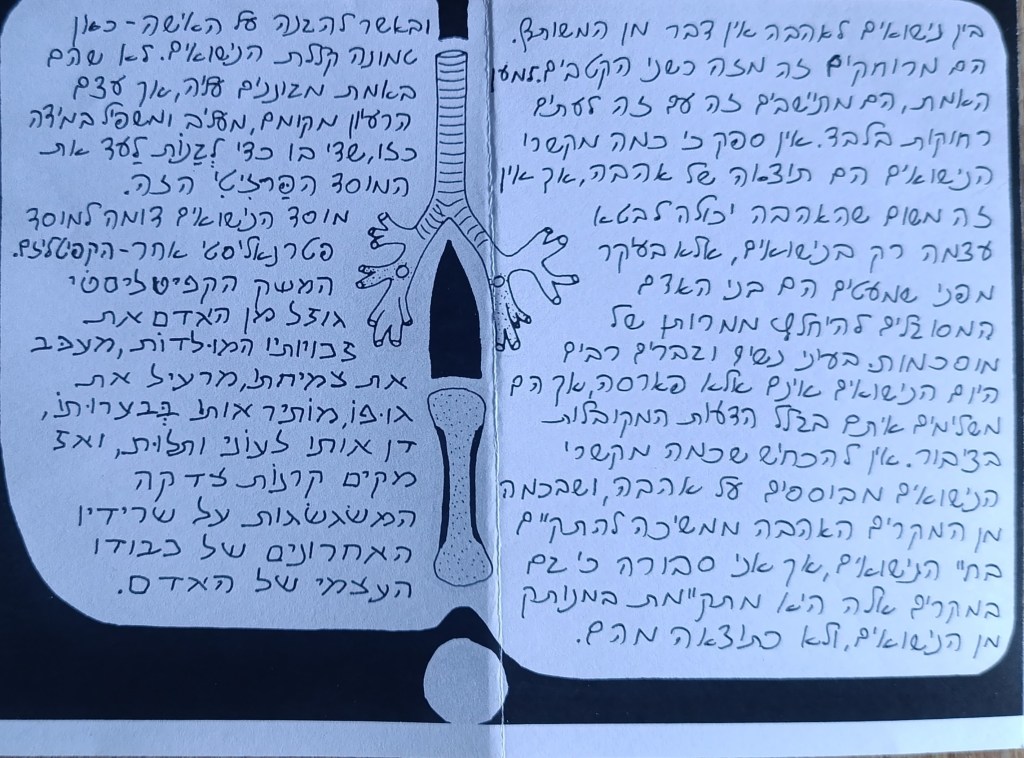 בין נישואים לאהבה אין דבר מן המשותף.
הם מרוחקים זה מזה כשני הקטבים. למען
האמת, הם מתיישבים זה עם זה לעתים
רחוקות בלבד. אין ספק כי כמה מקשרי
הנישואים הם תוצאה של אהבה, אך אין
זה משום שהאהבה יכולה לבטא
עצמה רק בנישואים, אלא בעיקר
מפני שמעטים הם בני האדם
המסוגלים להיחלץ ממרותן של
מוסכמות. בעיני נשים וגברים רבים
היום הנישואים אינם אלא פארסה, אך הם
משלימים איתם בגלל הדעות המקובלות
בציבור. אין להכחיש שכמה מקשרי
הנישואים מבוססים על אהבה, ושבכמה
מן המקרים האהבה ממשיכה להתקיים
בחיי הנישואים, אך אני סבורה כי גם
במקרים אלה היא מתקיימת במנותק
מן הנישואים, ולא כתוצאה מהם.
ובאשר להגנה על האישה - כאן
טמונה קללת הנישואים. לא שהם
באמת מגוננים עליה, אך עצם
הרעיון מקומם, מעליב ומשפיל במידה
כזו, שדי בו כדי לְגַנּוֹת לָעַד את
המוסד הפָּרָזִיטִי הזה.
מוסד הנישואים דומה למוסד
פטרנאליסטי אחר - הקפיטליזם.
המשק הקפיטליסטי
גוזל מן האדם את
זכויותיו המולדות, מעכב
את צמיחתו, מרעיל את
גופו, מותיר אותו בְּבַעֲרוּתוֹ,
דן אותו לעוני ותלות, ואז
מקים קרנות צדקה
המשגשגות על שרידיו
האחרונים של כבודו
העצמי של האדם.